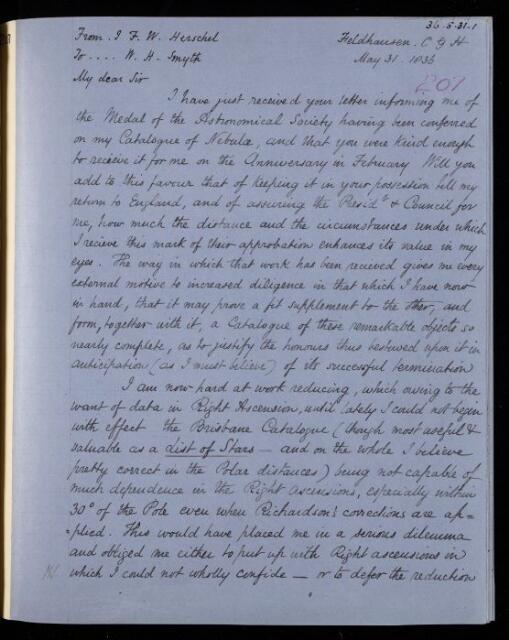 36-5-31.1
From. J. F. W. Herschel
Feldhausen. C G H
To .... W. H. Smyth
May 31. 1836
207
My dear Sir
I have just received your letter informing me of
the Medal of the Astronomical Society having been conferred
on my Catalogue of Nebulæ, and that you were kind enough
to receive it for me on the Anniversary in February Will you
add to this favour that of keeping it in your possession till my
return to England, and of assuring the Presidt & Council for
me, how much the distance and the circumstances under which
I recieve this mark of their approbation enhances its value in my
eyes. The way in which that work has been received gives me every
external motive to increased diligence in that which I have now
in hand, that it may prove a fit supplement to the other, and
form, together with it, a Catalogue of these remarkable objects so
nearly complete, as to justify the honours thus bestowed upon it in
anticipation (as I must believe) of its successful termination
I am now hard at work reducing, which owing to the
want of data in Right Ascension, until lately I could not begin
with effect the Brisbane Catalogue (though most useful &
valuable as a List of Stars — and on the whole I believe
pretty correct in the Polar distances) being not capable of
much dependence in the Right ascensions, especially within
30° of the Pole even when Richardson's corrections are ap=
=plied. This would have placed me in a serious dilemma
and obliged me either to put up with Right ascensions in
which I could not wholly confide — or to defer the reduction